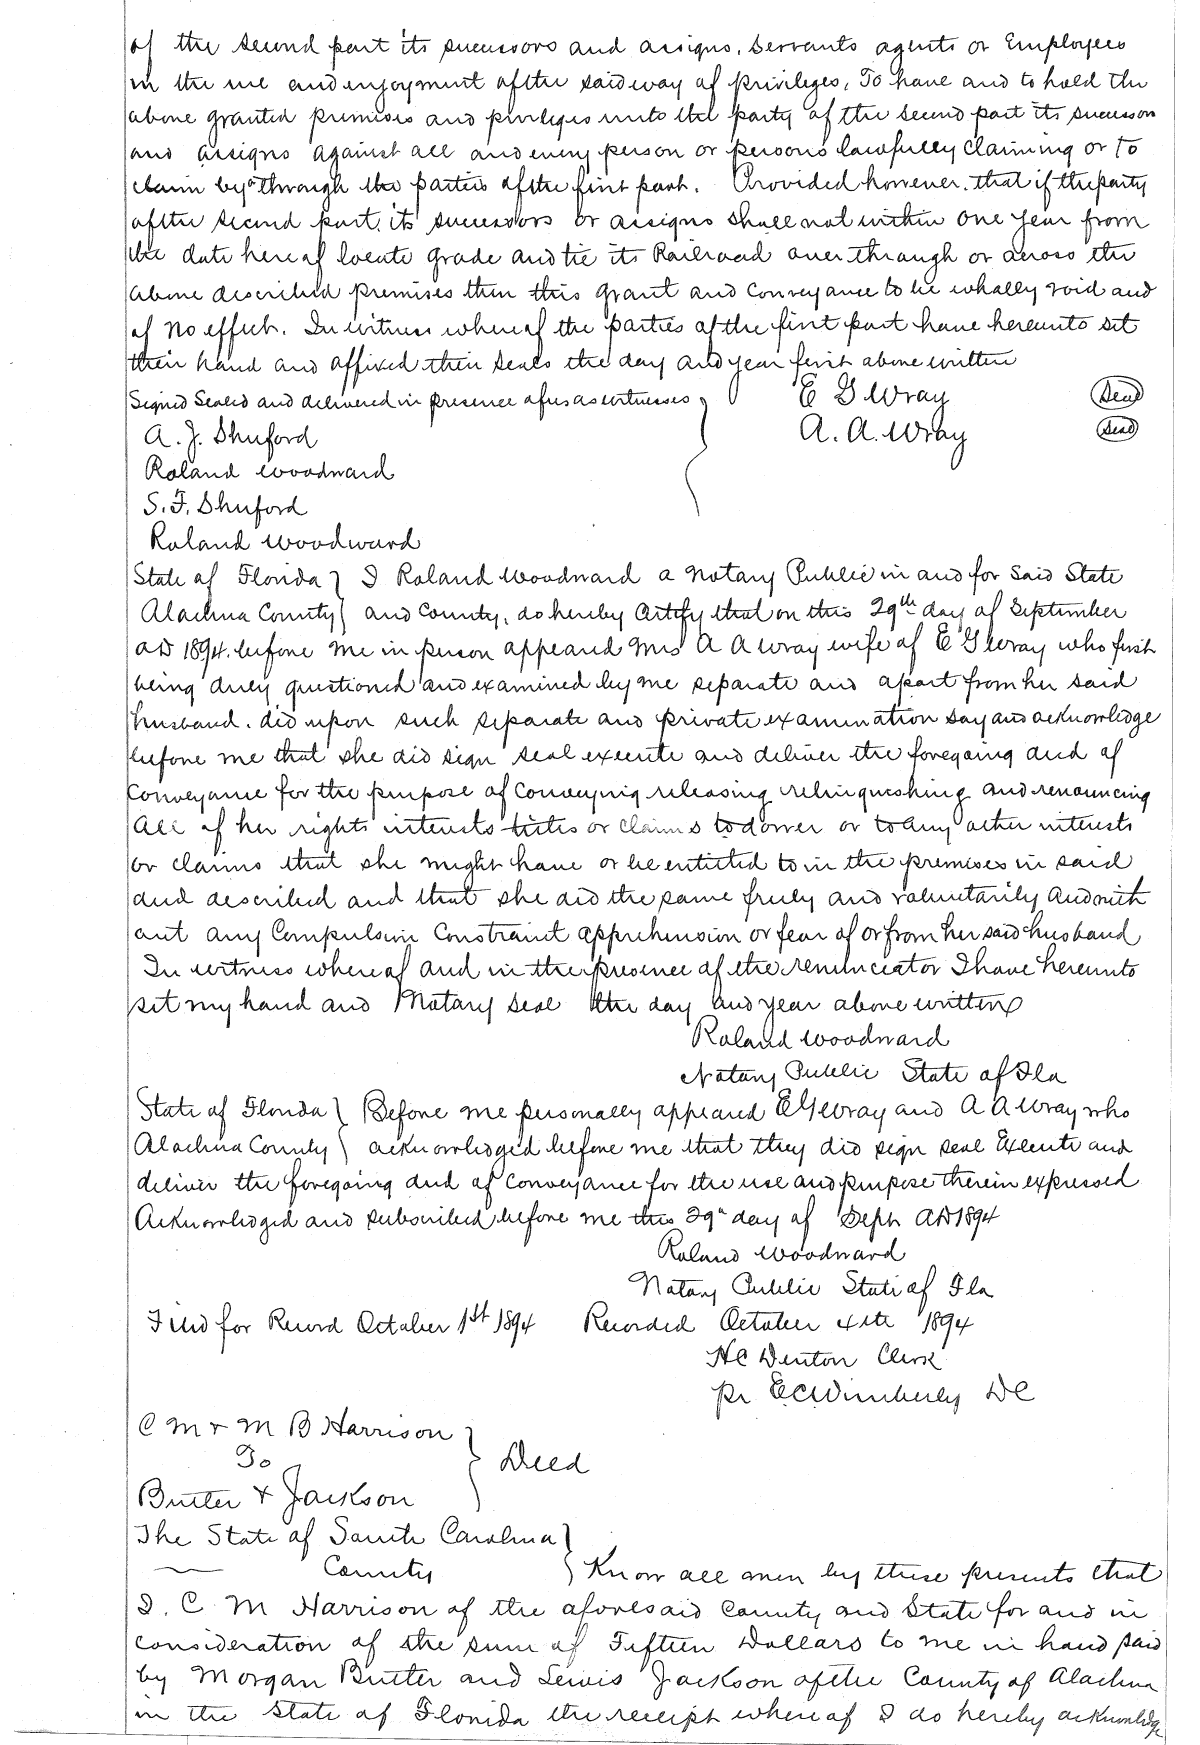 of the second part its successors and assigns, servants agents or Employees
in the use and enjoyment of the said way of privileges, To have and to hold the
above granted premises and privileges unto the party of the second part its successors
and assigns against all and every person or persons lawfully claiming or to
claim by or through the parties of the first part. Provided however, that if the party
of the second part, its successors or assigns shall not within one year from
the date here of locate grade and tie its Railroad over through or across the
above described premises then this grant and conveyance to be wholly void and
of no effect. In witness where of the parties of the first part have hereunto set
their hand and affixed their seals the day and year first above written
Signed Sealed and delivered in presence of us as witnesses } E G Wray (Seal)
A. J. Shuford A. A. Wray (Seal)
Roland Woodward
S. F. Shuford
Roland Woodward
State of Florida } I Roland Woodward a Notary Public in and for said State
Alachua County } and County, do hereby certify that on this 29th day of September
AD 1894. before me in person appeared Mrs A A Wray wife of E G Wray who first
being duly questioned and examined by me separate and apart from her said
husband. did upon such separate and private examination say and acknowledge
before me that she did sign seal execute and deliver the foregoing deed of
Conveyance for the purpose of conveying releasing relinquishing and renouncing
all of her rights interests titles or claims to dower or to any other interests
or claims that she might have or be entitled to in the premises in said
deed described and that she did the same freely and voluntarily and with
out any Compulsion Constraint apprehension or fear of or from her said husband
In witness where of and in the presence of the renunciator I have hereunto
set my hand and Notary seal the day and year above written
Roland Woodward
Notary Public State of Fla
State of Florida } Before me personally appeared E G Wray and A A Wray who
Alachua County } acknowledged before me that they did sign seal Execute and
deliver the foregoing deed of conveyance for the use and purpose therein expressed
Acknowledged and subscribed before me this 29th day of Sept AD 1894
Roland Woodward
Notary Public State of Fla
Filed for Record October 1st 1894 Recorded October 4th 1894
H C Denton Clerk
Pr E C Wimberly DC
C M & M B Harrison
To } Deed
Butler & Jackson
The State of South Carolina }
County } Know all men by these presents that
I. C M Harrison of the aforesaid County and State for and in
consideration of the sum of Fifteen Dollars to me in hand paid
by Morgan Butler and Lewis Jackson of the County of Alachua
in the State of Florida the receipt where of I do hereby acknowledge